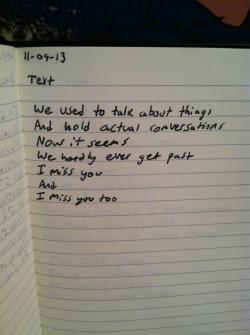 11-09-13
Text
We used to talk about things
And hold actual conversations
Now it seems
We hardly ever get past
I miss you
And
I miss you too